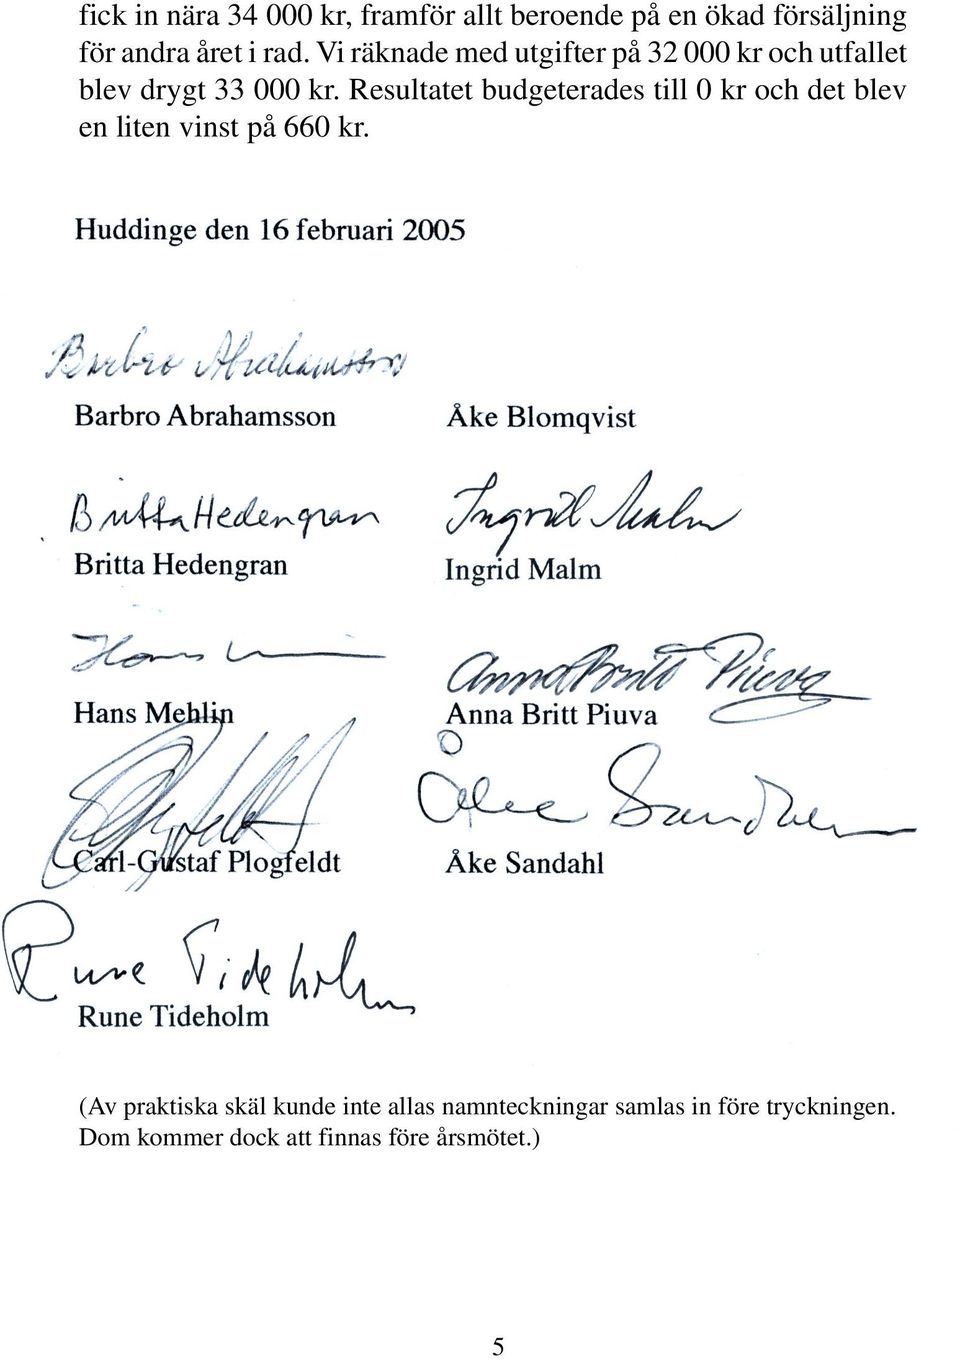 fick in nära 34 000 kr, framför allt beroende på en ökad försäljning
för andra året i rad. Vi räknade med utgifter på 32 000 kr och utfallet
blev drygt 33 000 kr. Resultatet budgeterades till 0 kr och det blev
en liten vinst på 660 kr.
Huddinge den 16 februari 2005
Barbro Abrahamsson
Barbro Abrahamsson Åke Blomqvist
Britta Hedengran Ingrid Malm
Britta Hedengran Ingrid Malm
Hans Anna Britt Piuva
Hans Mehlin Anna Britt Piuva
Åke Sandahl
Carl-Gustaf Plogfeldt Åke Sandahl
Rune Tideholm
Rune Tideholm
(Av praktiska skäl kunde inte allas namnteckningar samlas in före tryckningen.
Dom kommer dock att finnas före årsmötet.)
5